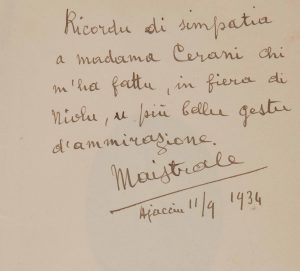 Ricordu di simpatia
a madama Cerani chi
m'ha fattu, in fiera di
Niolu, u più bellu gestu
d'ammirazione.
Maistrale
Ajacciu 11/9 1934